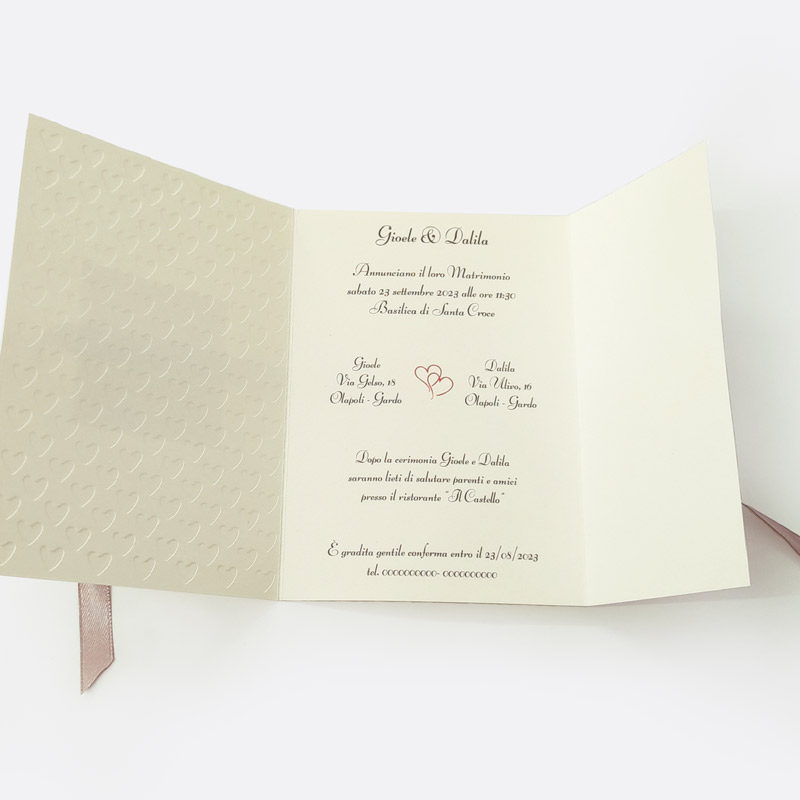 Gioele & Dalila
Annunciano il loro Matrimonio
sabato 23 settembre 2023 alle ore 11:30
Basilica di Santa Croce
Gioele
Via Gelso, 18
Olapoli - Gardo
Dalila
Via Ulivo, 16
Olapoli - Gardo
Dopo la cerimonia Gioele e Dalila
saranno lieti di salutare parenti e amici
presso il ristorante "Il Castello"
È gradita gentile conferma entro il 23/08/2023
tel. 0000000000- 0000000000